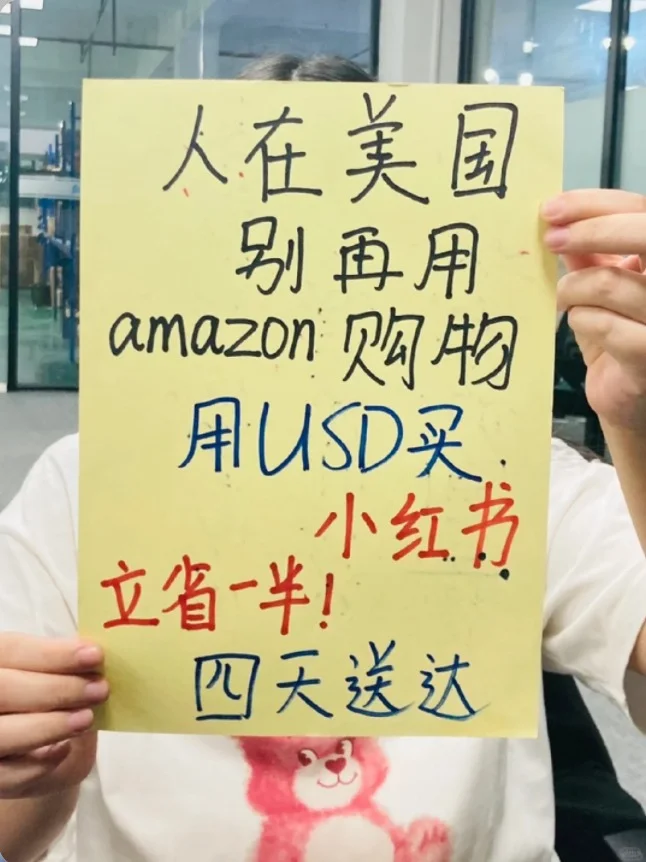 人在美国
别再用
amazon购物
用USD买
小红书
立省一半!
四天送达